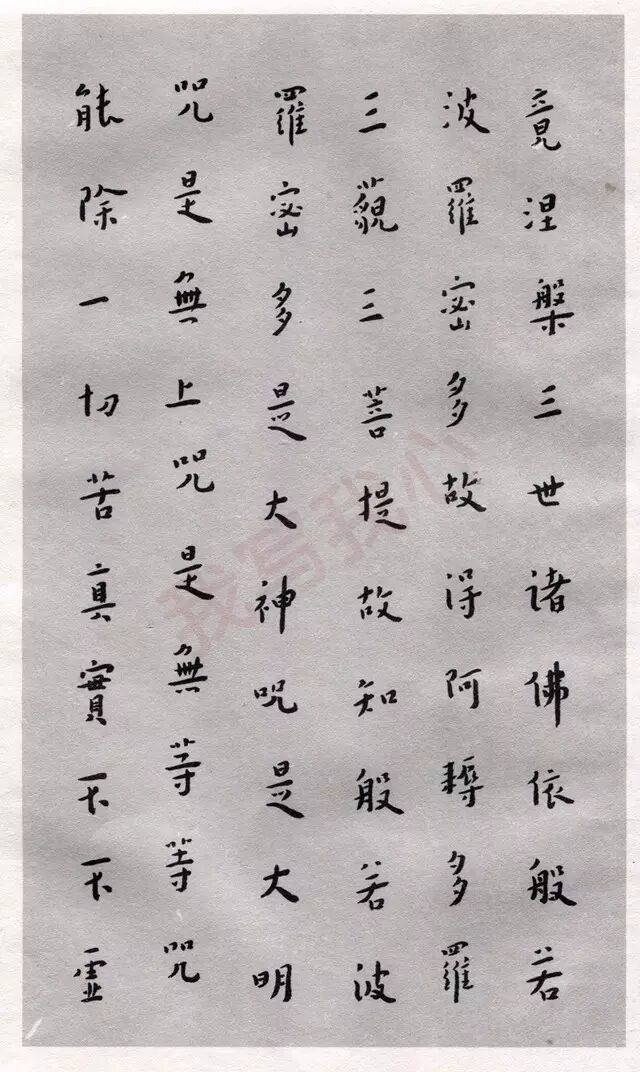 竟涅槃三世諸佛依般若
波羅密多故得阿耨多羅
三藐三菩提故知般若波
羅密多是大神咒是大明
咒是無上咒是無等等咒
能除一切苦真實不不虚
我写我心